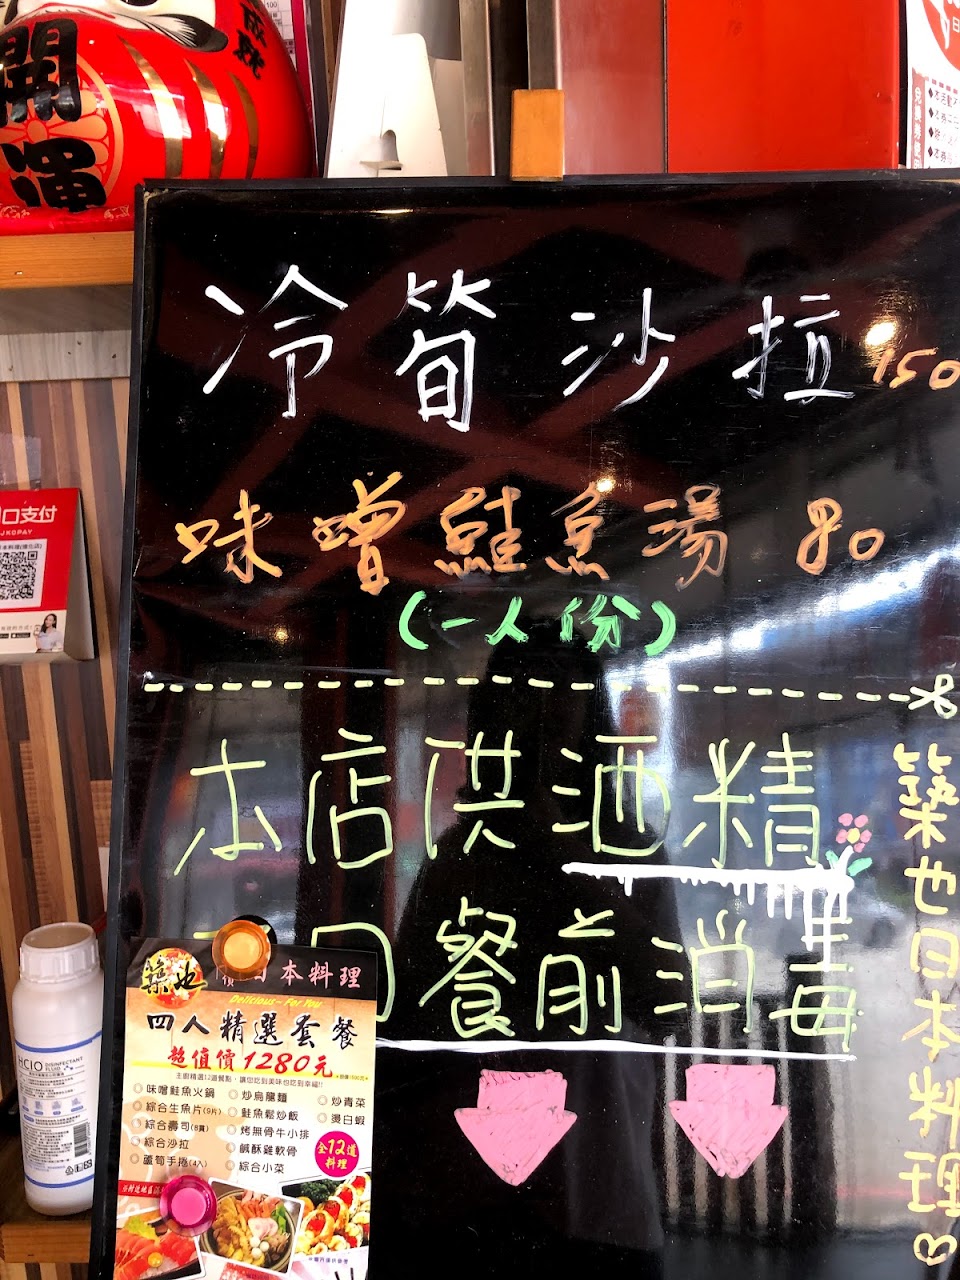 開運
冷筍沙拉 150
味噌鮭魚湯 80
(一人份)
口支付
JKOPAY
本店供酒精
餐前消毒
築也日本料理
築也 日本料理
Delicious~ For You
四人精選套餐
超值價1280元
主廚精選12道餐點，讓您吃到美味也吃到幸福!!
味噌鮭魚火鍋
綜合生魚片(9片)
綜合壽司(8貫)
綜合沙拉
蘆筍手捲(4入)
炒烏龍麵
鮭魚鬆炒飯
烤無骨牛小排
鹹酥雞軟骨
綜合小菜
炒青菜
燙白蝦
全12道
料理
HClO DISINFECTANT
FLUID